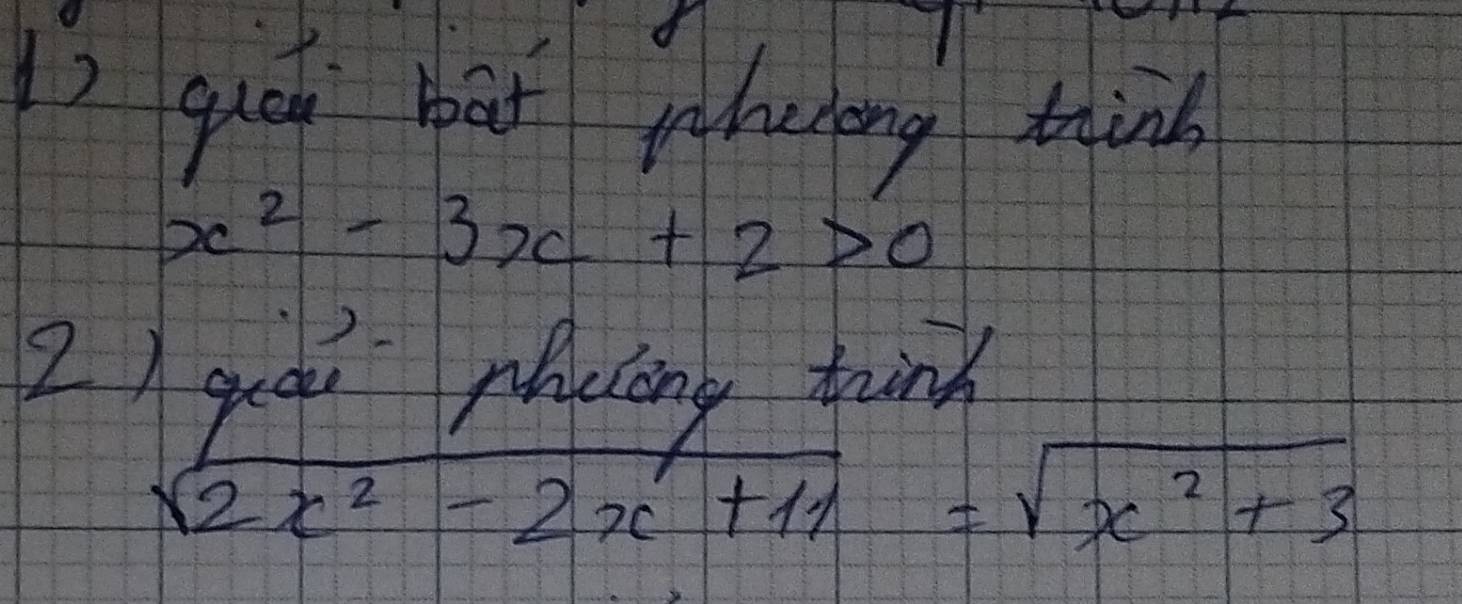 1) giải bất phương trình
x² - 3x + 2 > 0
2) giải phương trình
√(2x² - 2x + 11) = √(x² + 3)